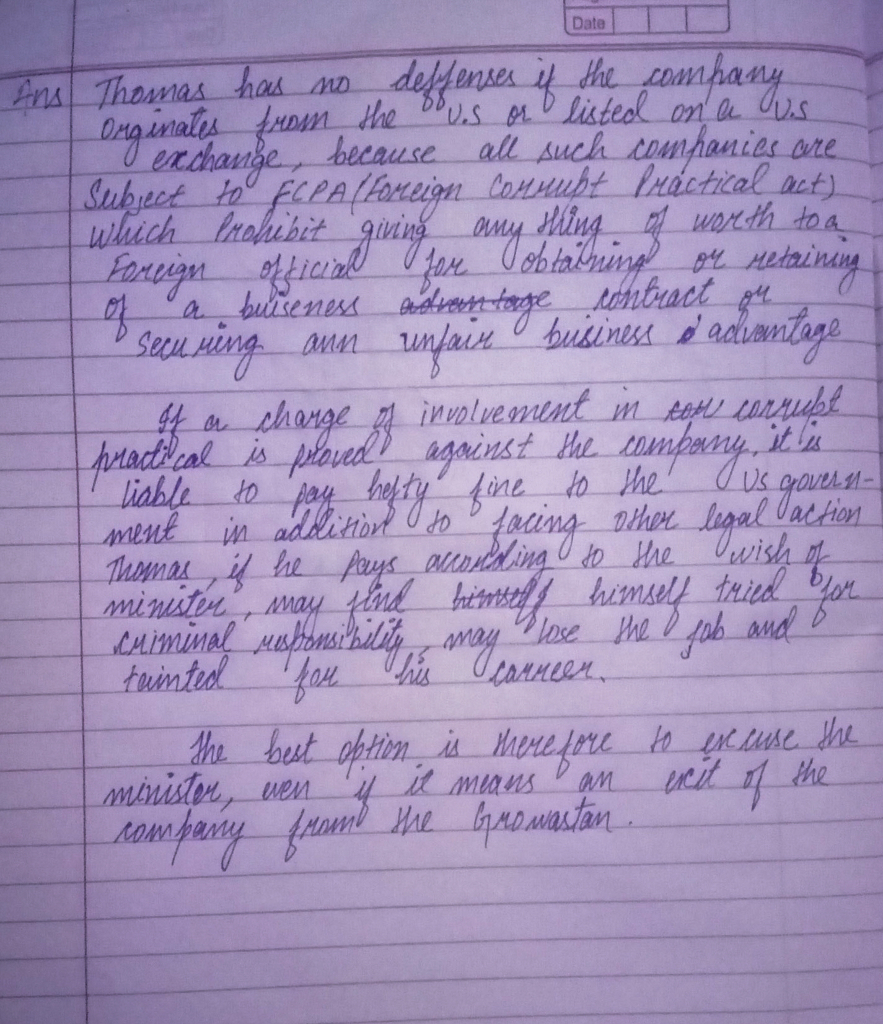 Date
Ans Thomas has no deffenses if the company
Orginates from the U.S or listed on a U.S
exchange, because all such companies are
Subject to FCPA (Foreign Corrupt Practical act)
which Prohibit giving any thing of worth to a
Foreign official for obtaining or retaining
of a buiseness advantage contract or
Securing ann unfair business advantage
If a charge of involvement in corrupt
practical is proved against the company, it is
liable to pay hefty fine to the US govern-
ment in addition to facing other legal action
Thomas, if he Pays according to the wish of
minister, may find himself himself tried for
criminal responsibility, may lose the job and
tainted for his carreer.
The best option is therefore to excuse the
minister, even if it means an exit of the
company from the Growastan.